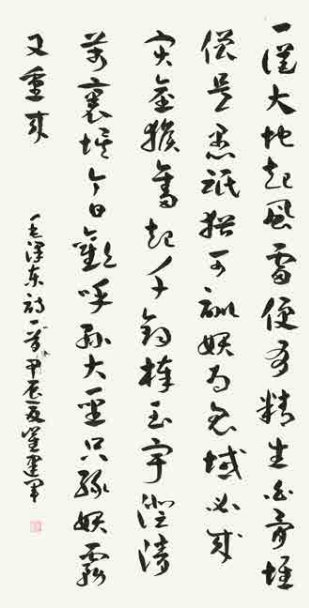 一從大地起風雷便有精生白骨堆
僧是愚氓猶可訓妖為鬼域必成
灾金猴奮起千鈞棒玉宇澄清
萬裏埃今日歡呼孫大聖只緣妖霧
又重來
毛澤東詩一首甲辰夏建軍